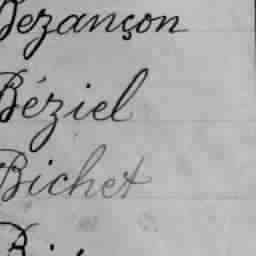 Bezançon
Béziel
Bichet